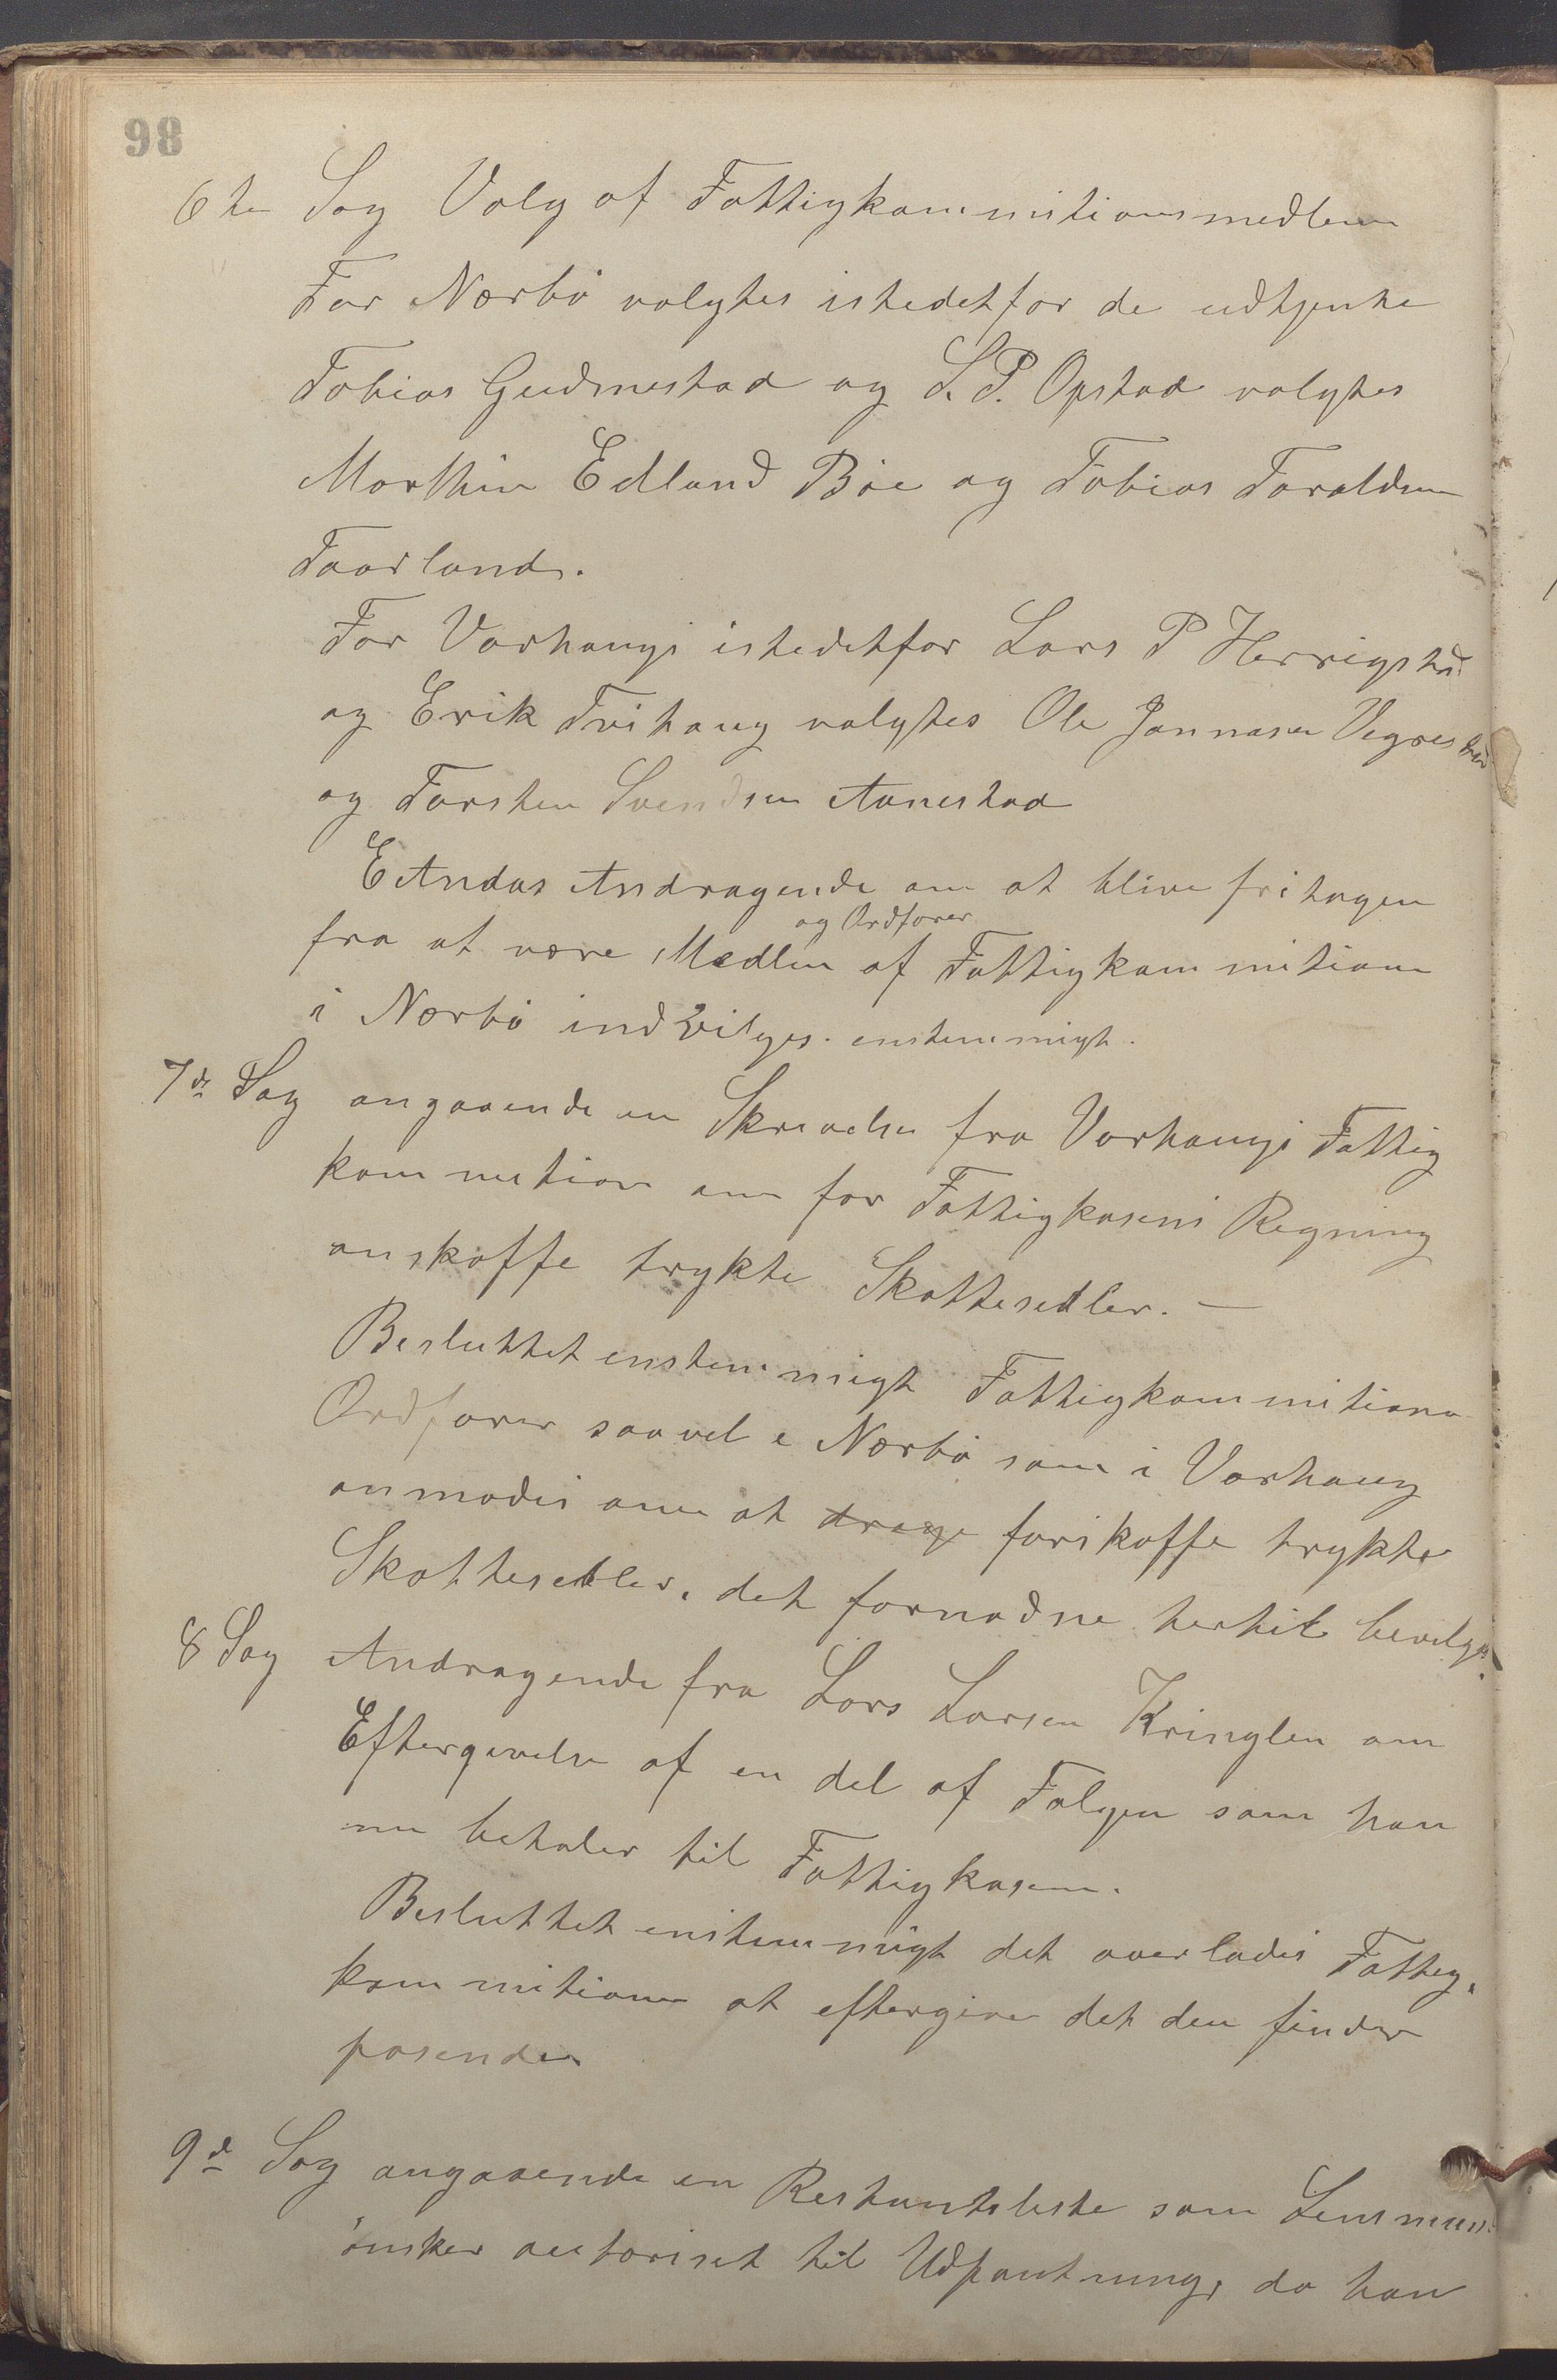 98
6te Sag Valg af Fattigkommitionsmedlem
For Nærbø valgtes istedetfor de udtjente
Tobias Gudmestad og S. P. Opstad valgtes
Morthin Edland Bøe og Tobias Taraldsen
Taarland.
For Varhaugs istedetfor Lars P Herrigstad
og Erik Tvihaug valgtes Ole Jonnasen Vigrestad
og Torsten Svendsen Aanestad
E Andas Andragende om at blive fritagen
og Ordfører
fra at være Medlem af Fattigkommition
i Nærbø indvilges enstemmigt.
7de Sag angaaende en Skrivelse fra Varhaugs Fattig
kommition om for Fattigkasens Regning
anskaffe trykte Skattesedler. —
Besluttet enstemmigt Fattigkommitions
Ordfører saavel i Nærbø som i Varhaug
anmodes om at drage forskaffe trykte
Skattesedler, det fornødne hertil bevilges.
8 Sag Andragende fra Lars Larsen Kringlen om
Eftergivelse af en del af Følgen som han
nu betaler til Fattigkasen.
Besluttet enstemmigt det overlades Fattig,
kommitionen at eftergive det den finder
pasende
9de Sag angaaende en Restantsliste som Lensmann
ønsker autoriset til Udpantning, da han